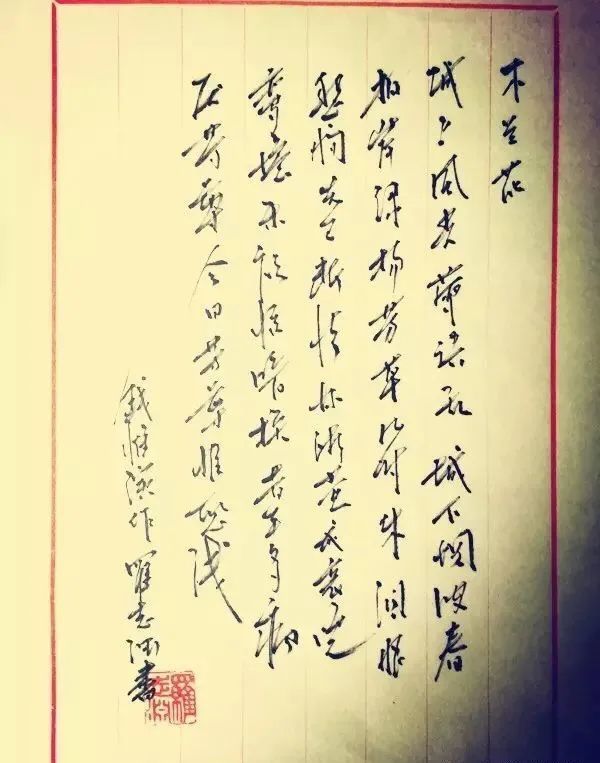 木兰花
城上风光莺语乱 城下烟波春
拍岸绿杨芳草几时休 泪眼
愁肠先已断情怀渐觉成衰晚
鸾镜朱颜惊暗换昔年多病
厌芳尊今日芳尊惟恐浅
钱惟演作 罗志 书